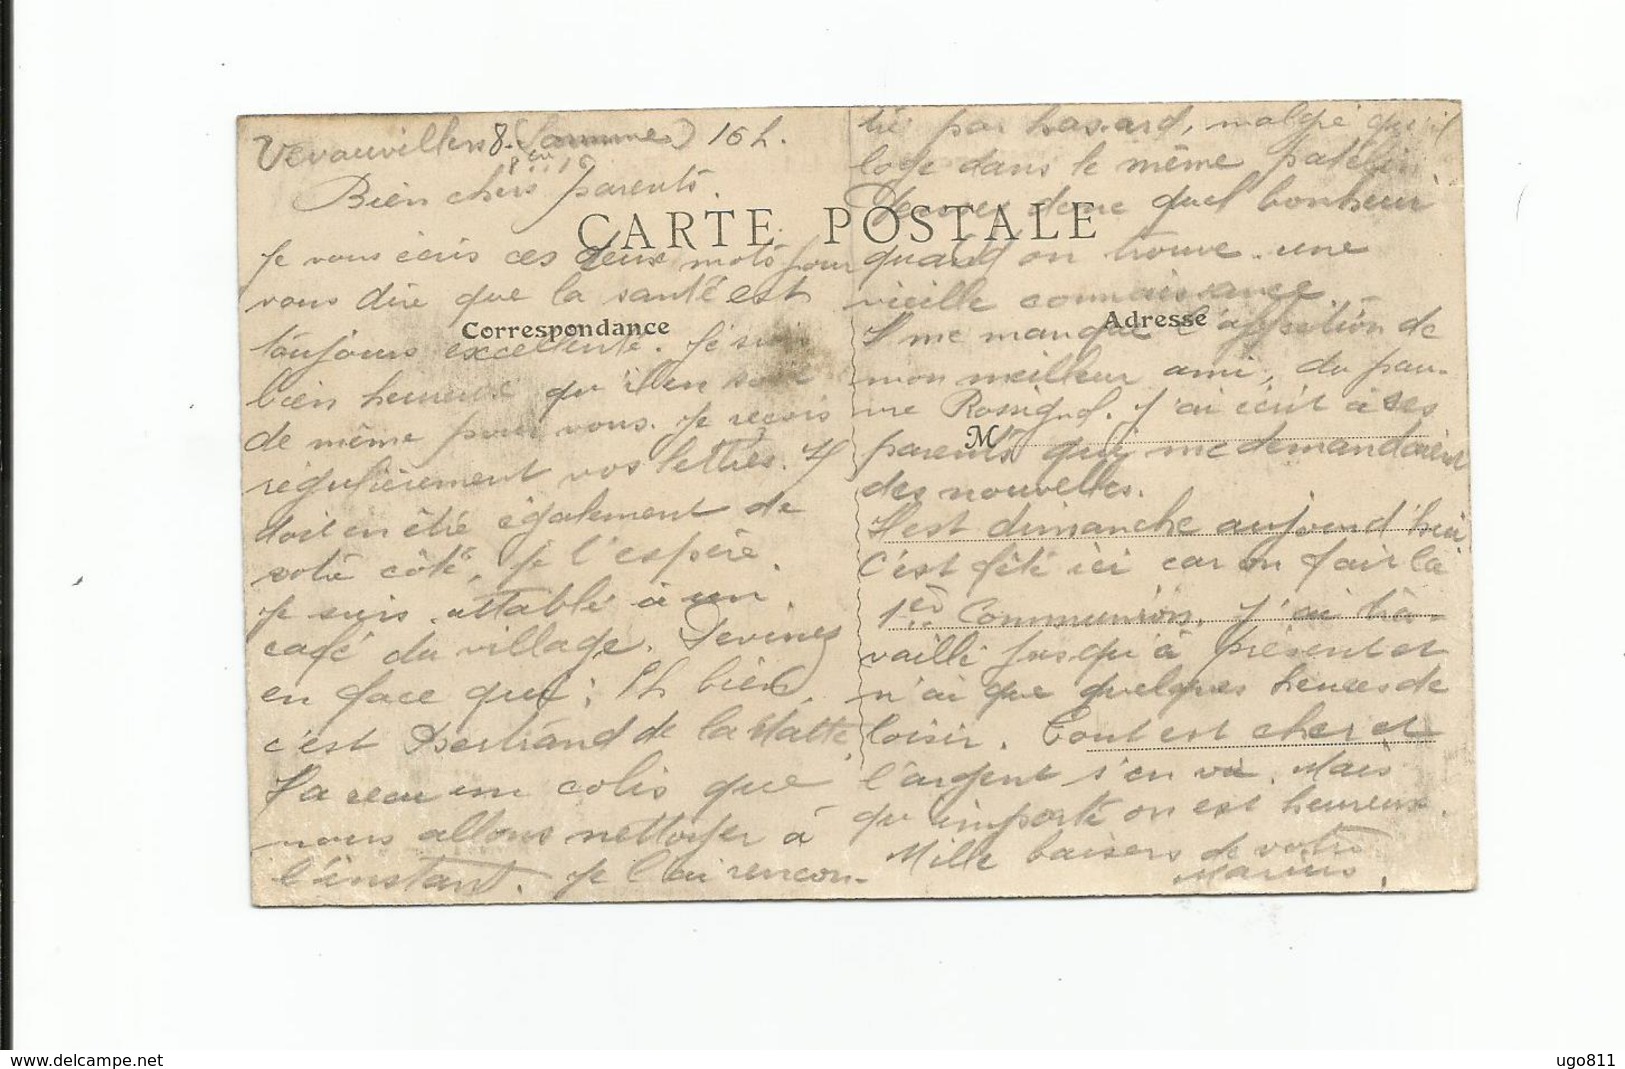 Vévauvillers 8. (Somme) 16 h.
Bien chers parents.
CARTE POSTALE
Correspondance
Adresse
M
Je vous écris ces deux mots pour
vous dire que la santé est
toujours excellente. Je suis
bien heureux qu'il en soit
de même pour vous. Je reçois
régulièrement vos lettres. Il
doit en être également de
votre côté, je l'espère.
Je suis attablé à un
café du village. Devinez
en face qui; Eh bien,
c'est Bertrand de la Matte.
Il a reçu un colis que
nous allons nettoyer à
l'instant. Je l'ai rencon-
tré par hasard, malgré qu'il
loge dans le même patelin
que quel bonheur
quand on trouve une
vieille connaissance.
Il me manque l'apparition de
mon meilleur ami, du pau-
vre Rossignol. J'ai écrit à ses
parents qui me demandaient
des nouvelles.
Il est dimanche aujourd'hui
C'est fête ici car on fait la
1ère Communion. J'ai tra-
vaillé jusqu'à présent et
n'ai que quelques heures de
loisir. Tout est cher et
l'argent s'en va. Mais
qu'importe on est heureux.
Mille baisers de votre
Marius.
www.delcampe.net
ugo811